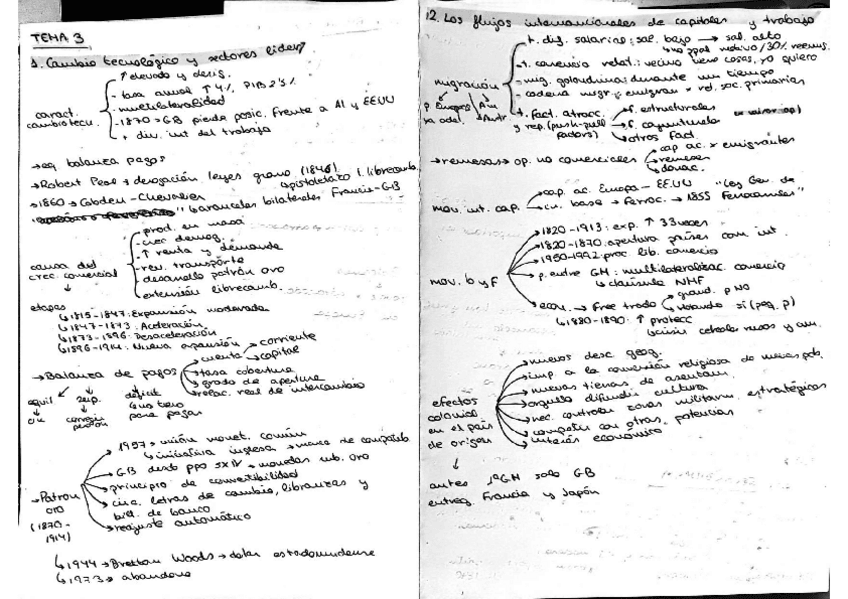 TEMA 3
1. Cambio tecnológico y sectores líder
caract. cambio tecu.
↑ elevado y desig.
- tasa anual ↑ 4%, PIB 2'5%
- multilateralidad
- 1870 → GB pierde posic. frente a Al y EEUU
+ div. int del trabajo
→ eq balanza pagos
→ Robert Peel → derogación leyes grano (1846)
apistoletazo l. librecamb.
→ 1860 → Cobden - Chevalier
↳ aranceles bilaterales Francia - GB
causa del crec. comercial
prod. en masa
crec demog.
↑ renta y demanda
rev. transporte
desarrollo patrón oro
extensión librecamb.
etapas
↳ 1815-1847: Expansión moderada
↳ 1847-1873: Aceleración
↳ 1873-1896: Desaceleración
↳ 1896-1914: Nueva expansión
→ Balanza de pagos
cuenta
corriente
capital
tasa cobertura
grado de apertura
relac. real de intercambio
equil
sup.
déficit
para pagar
→ Patron oro (1870-1914)
1957 → unión monet. común
↳ iniciativa inglesa →
GB desde ppo SXIX → monedas sub. oro
principio de convertibilidad
circ. letras de cambio, libranzas y
bill. de banco
reajuste automático
↳ 1944 → Bretton Woods → dolar estadounidense
↳ 1973 → abandono
12. Los flujos internacionales de capitales y trabajo
migración
+. dif. salarial: sal. bajo → sal. alto
↳ no ppal motivo / 30% reemig.
+. comercio relat.: vecino tiene cosas, yo quiero
- mig. golondrina: durante un tiempo
- cadena migr.: emigran x rel. soc. primarias
+. fact. atracc. y rep. (push-pull factors)
f. estructurales
f. coyunturales
otros fact.
→ remesas → op. no comerciales
cap ac. x emigrantes
remesas
donac.
mov. int. cap.
cap. ac. Europa - EEUU "Ley Gen. de
→ ferroc. → 1855 Ferrocarriles"
mov. b y f
1820-1913: exp. ↑ 33 veces
1820-1870: apertura países com int.
1950-1992: proc lib. comercio
p. entre GM: multilateralizac. comercio
↳ clausula NMF
econ. → Free trade
grand. p NO
si (peq. p)
↳ 1880-1890: ↑ protecc
↳ crisis cereales rusos y am.
efectos colonial en el país de origen
nuevos desc geog.
imp. a la conversión religiosa de nuevos pob.
nuevas tierras de asentam.
orgullo difundir cultura
nec. controlar zonas militares, estratégicas
competir con otras potencias
interés economico
antes 1ªGM solo GB
entreg. Francia y Japón